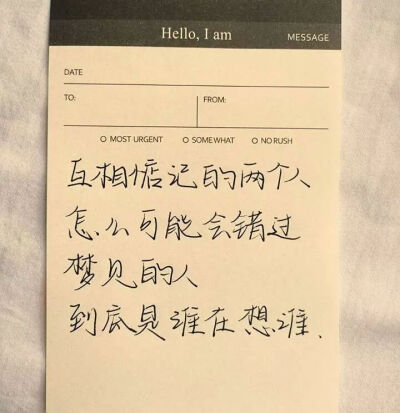 Hello, I am
MESSAGE
DATE
TO: FROM:
MOST URGENT SOMEWHAT NO RUSH
互相惦记的两个人
怎么可能会错过
梦见的人
到底是谁在想谁.